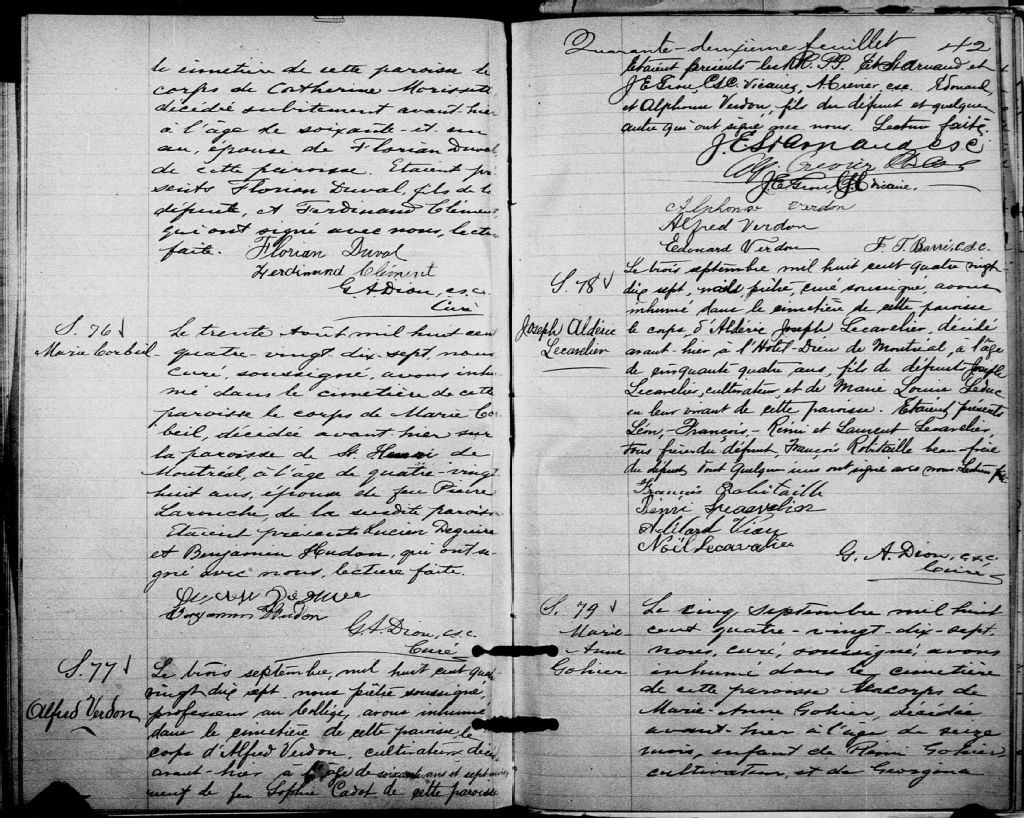 le cimetière de cette paroisse le
corps de Catherine Morissette
décédée subitement avant-hier
à l'âge de soixante-et un
an, épouse de Florian Duval
de cette paroisse. Etaient pré
sents Florian Duval, fils de la
défunte, et Ferdinand Clément
qui ont signé avec nous, lecture
faite.
Florian Duval
Ferdinand Clément
G. A. Dion, c.s.c.
Curé
S. 76
Marie Corbeil
Le trente Août mil huit cent
quatre-vingt dix-sept, nous
curé, soussigné, avons inhu
mé dans le cimetière de cette
paroisse le corps de Marie Cor
beil, décédée avant-hier sur
la paroisse de St. Henri de
Montréal, à l'âge de quatre-vingt
huit ans, épouse de feu Pierre
Larouche, de la susdite paroisse
Etaient présents Lucien Deguire
et Benjamin Hudon, qui ont si
gné avec nous, lecture faite.
Lucien Deguire
Benjamin Hudon
G. A. Dion, c.s.c.
Curé
S. 77
Alfred Verdon
Le trois septembre, mil huit cent quatre
vingt dix sept nous prêtre soussigné,
professeur au Collège, avons inhumé
dans le cimetière de cette paroisse, le
corps d'Alfred Verdon, cultivateur, décédé
avant-hier à l'âge de soixante ans et sept mois,
veuf de feu Sophie Cadot de cette paroisse
Quarante-deuxième feuillet 42
Etaient présents les RR. PP. Et. St Arnaud et
J. E. Trou, C.S.C. Vicaires, A. Crevier, c.s.c. Edouard
et Alphonse Verdon, fils du défunt et quelques
autre qui ont signé avec nous. Lecture faite.
J. E. St Arnaud, c.s.c
Alf. Crevier C.S.C.
J. E. Trou, C.S.C. Vicaire.
Alphonse Verdon
Alfred Verdon
Edouard Verdon F. T. Barré, c.s.c.
S. 78
Joseph Aldéric
Lecavelier
Le trois septembre mil huit cent quatre vingt
dix sept, nous prêtre curé soussigné, avons
inhumé dans le cimetière de cette paroisse
le corps d'Aldéric Joseph Lecavelier, décédé
avant-hier à l'Hôtel-Dieu de Montréal, à l'âge
de cinquante quatre ans, fils de défunts Joseph
Lecavelier, cultivateur, et de Marie Louise Leduc
en leur vivant de cette paroisse. Etaient présents
Léon-François-Remi et Laurent Lecavelier
tous frères du défunt, François Robitaille beau-frère
du défunt, dont quelques uns ont signé avec nous Lecture f.
François Robitaille
Rémi Lecavelier
Adélard Viau
Noël Lecavalier
G. A. Dion, c.s.c.
Curé
S. 79
Marie-
Anne
Gohier
Le cinq septembre mil huit
cent quatre-vingt-dix-sept,
nous, curé, soussigné, avons
inhumé dans le cimetière
de cette paroisse le corps de
Marie-Anne Gohier, décédée
avant-hier à l'âge de seize
mois, enfant de Remi Gohier,
cultivateur, et de Georgina